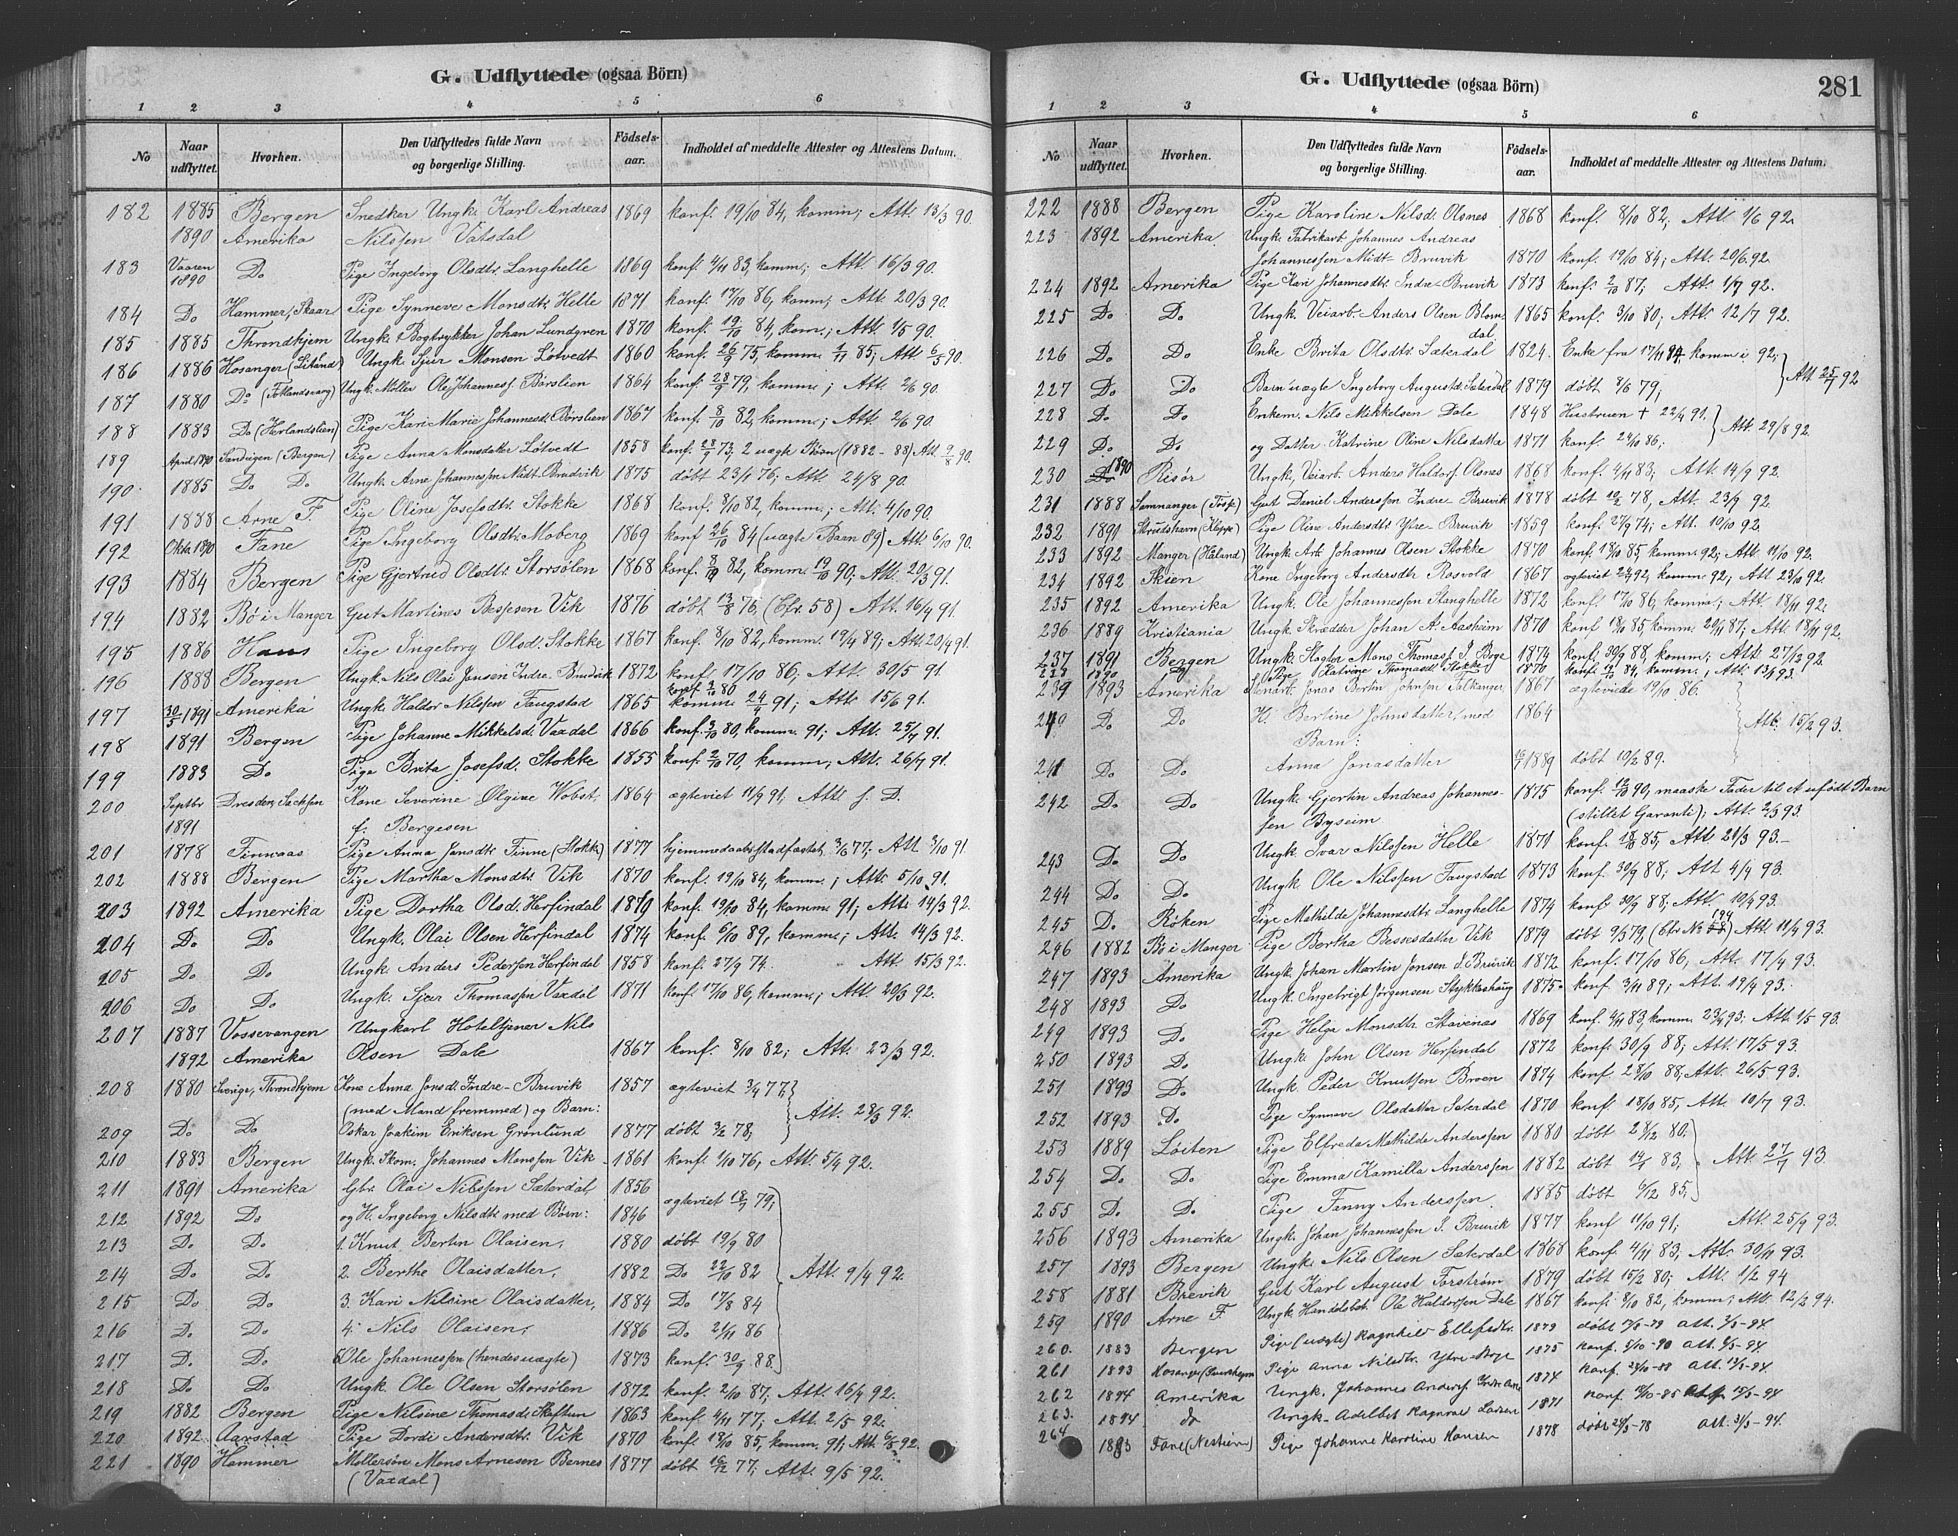 G. Udflyttede (ogsaa Börn)
1 2 3 4 5 6
No Naar udflyttet. Hvorhen. Den Udflyttedes fulde Navn og borgerlige Stilling. Födsels-aar. Indholdet af meddelte Attester og Attestens Datum.
182 1885 Bergen Snedker Ungk. Karl Andreas 1869 konf. 19/10 84, komm.; Att. 13/3 90.
1890 Amerika Nilssen Vatsdal
183 Vaaren 1890 Do Pige Ingeborg Olsdtr. Langhelle 1869 konf. 4/11 83, komm.; Att. 16/3 90.
184 Do Hammer, Skaar Pige Synneve Monsdtr. Helle 1871 konf. 17/10 86, komm; Att. 20/3 90.
185 1885 Throndhjem Ungk. Bogtrykker Johan Lundgren 1870 konf. 19/10 84, kom.; Att. 1/5 90.
186 1886 Hosanger Ungk. Sjur Monsen Løtvedt 1860 konf. 26/9 75, komm. 85; Att 6/5 90.
187 1880 Do Ungk. Møller Ole Johanness. Börslien 1864 konf. 28/9 79, komm.; Att. 2/6 90.
188 1883 Do (Herlandslien) Pige Kari Marie Johannesdt. Börslien 1867 konf. 8/10 82, komm.; Att. 2/6 90.
189 April 1890 Sandvigen (Bergen) Pige Anna Monsdatter Løtvedt 1858 konf. 28/9 73, 2 uægte Börn (1882-88) Att. 9/8 90.
190 1885 Do Do Ungk. Arne Johannessen Midt-Bruvik 1875 døbt 23/1 76; Att. 24/8 90.
191 1888 Arne F. Pige Oline Josefsdtr. Stokke 1868 konf. 8/10 82, komm.; Att. 4/10 90.
192 Oktb. 1890 Fane Pige Ingeborg Olsdtr. Moberg 1869 konf 26/10 84 (uægte Barn 89) Att. 6/10 90.
193 1884 Bergen Pige Gjertrud Olsdtr. Storsølen 1868 konf. 8/10 82, komm. 19/10 90; Att. 20/3 91.
194 1882 Bö i Manger Gut Martines Bessesen Vik 1876 døbt 13/8 76, (Cfr. 58) Att. 16/4 91.
195 1886 Haus Pige Ingeborg Olsd. Stokke 1867 konf. 8/10 82, komm. 19/4 89; Att. 20/4 91.
196 1888 Bergen Ungk. Nils Olai Jensen Indre Bruvik 1872 konf. 17/10 86, Att. 30/5 91.
197 30/5 1891 Amerika Ungk. Haldor Nilssen Faugstad 1865 konf. 3/10 80 komm. 24/4 91; Att. 15/6 91.
198 1891 Bergen Pige Johanne Mikkelsd. Vaxdal 1866 konf. 3/10 80, komm. 91; Att. 25/7 91.
199 1883 Do Pige Brita Josefsd. Stokke 1855 konf. 2/10 70, komm.; Att. 26/7 91.
200 Septbr 1891 Dresden, Sachsen Kone Severine Olgine Wobst, 1864 ægteviet 11/9 91, Att. s. D.
f. Bergesen
201 1878 Finnaas Pige Anna Jansdtr. Finne (Stokke) 1877 hjemmedaabs stadfæstet 3/6 77, Att. 3/10 91
202 1888 Bergen Pige Martha Monsdtr. Vik 1870 konf. 19/10 84, komm.; Att. 5/10 91.
203 1892 Amerika Pige Dortha Olsd. Herfindal 1870 konf. 19/10 84, komm 91; Att. 14/3 92.
204 Do Do Ungk. Olai Olsen Herfindal 1874 konf. 6/10 89, komm.; Att. 14/3 92.
205 Do Do Ungk. Anders Pedersen Herfindal 1858 konf. 27/9 74. Att. 15/3 92.
206 Do Do Ungk. Sjur Thomassen Vaxdal 1871 konf. 17/10 86, komm.; Att. 20/3 92.
207 1887 Vossevangen Ungkarl Hoteltjener Nils
1892 Amerika Olsen Dale 1867 konf. 8/10 82; Att. 23/3 92.
208 1880 Sverige, Throndhjem Kone Anna Jonsd. Indre-Bruvik 1857 ægteviet 3/4 77;
(med Mand fremmed) og Barn: Att. 28/3 92.
209 Do Do Oskar Joakim Eriksen Grønlund 1877 døbt 3/2 78;
210 1883 Bergen Ungk. Skom. Johannes Monssen Vik 1861 konf. 1/10 76, Att. 5/4 92.
211 1891 Amerika Gbr. Olai Nilssen Sæterdal, 1856 ægteviet 18/5 79;
212 1892 Do og H. Ingeborg Nilsdtr. med Børn: 1846
213 Do Do 1. Knut Bertin Olaisen, 1880 døbt 19/9 80
214 Do Do 2. Berthe Olaisdatter, 1882 Do 22/10 82 Att. 9/4 92.
215 Do Do 3. Kari Nilsine Olaisdatter, 1884 Do 17/8 84
216 Do Do 4. Nils Olaisen, 1886 Do 21/11 86
217 D. Do Ole Johannessen (hendes uægte) 1873 konf. 30/9 88.
218 Do Do Ungk. Ole Olsen Storsølen 1872 konf. 2/10 87, Att. 16/4 92.
219 1882 Bergen Pige Nilsine Thomasd. Skaftun 1863 konf. 4/11 77; Att. 2/5 92.
220 1892 Aarstad Pige Dordi Andersdtr. Vik 1870 konf. 18/10 85, komm. 91, Att. 6/5 92.
221 1890 Hammer Møllersøn Mons Arnesen Bernes 1877 døbt 16/12 77; Att. 9/5 92.
(Vaxdal)
G. Udflyttede (ogsaa Börn) 281
1 2 3 4 5 6
No Naar udflyttet. Hvorhen. Den Udflyttedes fulde Navn og borgerlige Stilling. Födsels-aar. Indholdet af meddelte Attester og Attestens Datum.
222 1888 Bergen Pige Karoline Nilsd. Olsnes 1868 konf. 8/10 82, Att. 1/6 92.
223 1892 Amerika Ungk. Fabrikarb. Johannes Andreas
Johannessen Midt-Bruvik 1870 konf. 19/10 84; Att. 20/6 92.
224 1892 Amerika Pige Kari Johannesdtr. Indre-Bruvik 1873 konf. 2/10 87, Att. 1/7 92.
225 Do Do Ungk. Veiarb. Anders Olsen Blom- 1865 konf. 3/10 80; Att. 12/7 92.
dal
226 Do Do Enke Brita Olsdtr. Sæterdal 1824. Enke fra 17/11 84 komm. i 92;
227 Do Do Barn uægte Ingeborg Augustd. Sæterdal 1879 døbt 8/6 79; Att 25/7 92
228 Do Do Enkem. Nils Mikkelsen Dale 1848 Hustruen + 22/4 91.
229 Do Do og Datter Katrine Oline Nilsdatter 1871 konf. 24/10 86; Att. 29/8 92.
230 1890 Risør Ungk. Veiarb. Anders Haldors. Olsnes 1868 konf. 4/11 83, Att. 14/9 92.
231 1888 Samnanger Gut Daniel Anderssen Indre Bruvik 1878 døbt 78, Att. 23/9 92.
232 1891 Skudeshavn (Kleppe) Pige Oline Andersdtr. Ytre-Bruvik 1859 konf. 27/9 74; Att. 10/10 92.
233 1892 Manger (Haland) Ungk. Arb. Johannes Olsen Stokke 1870 konf. 18/10 85, komm 92; Att. 11/10 92.
234 1892 Skien Kone Ingeborg Andersdtr. Rosvold 1867 ægteviet 92, komm 92; Att 23/10 92.
235 1892 Amerika Ungk. Ole Johannessen Langhelle 1872 konf. 17/10 86, komm.; Att. 18/11 92.
236 1889 Kristiania Ungk. Skrædder Johan A. Aasheim 1870 konf 18/10 85, komm. 20/11 87; Att. 18/11 92.
237 1891 Bergen Ungk. Slagter Mons Thomass. I. Boge 1874 konf. 30/9 88, komm.; Att. 27/12 92
238 1890 Do Pige Katrine Thomasdt. Stokke 1870 konf. 19/10 84, komm.; Att. 93.
239 1893 Amerika Stenarb. Jonas Bertin Johnsen Falkanger, 1867 ægteviede 19/10 86.
240 Do Do H. Bertine Johnsdatter, med 1864 Att. 16/2 93.
Barn:
241 Do Do Anna Jonasdatter 1889 døbt 10/2 89.
242 Do Do Ungk. Gjertin Andreas Johannes- 1875 konf. 90, maaske Fader til et ufødt Barn
sen Byseim (stillet Garanti); Att. 2/3 93.
243 Do Do Ungk. Ivar Nilssen Helle 1871 konf. 18/10 85, Att 21/3 93.
244 Do Do Ungk. Ole Nilssen Faugstad 1873 konf. 30/9 88, Att. 4/4 93.
245 D. Røken Pige Mathilde Johannesdtr. Langhelle 1874 konf. 30/9 88, Att. 10/4 93.
246 1882 Bö i Manger Pige Bertha Bessesdatter Vik 1879 døbt 9/5 79, (Cfr. No 194) Att. 11/4 93.
247 1893 Amerika Ungk. Johan Martin Jensen I. Bruvik 1872 konf. 17/10 86, Att. 17/4 93.
248 1893 Do Ungk. Ingebrigt Jørgensen Stykkeshaug 1875 konf 3/11 89; Att. 19/4 93.
249 1893 Do Pige Helga Monsdtr. Stavenes 1869 konf. 4/11 83, komm. 23/4 93. Att. 1/5 93.
250 1893 Do Ungk. John Olsen Herfindal 1872 konf. 30/9 88; Att. 17/5 93.
251 1893 Do Ungk. Peder Knutsen Broen 1874 konf. 28/10 88, Att. 26/5 93.
252 1893 Do Pige Synneve Olsdatter Sæterdal 1870 konf. 18/10 85, Att. 10/7 93.
253 1889 Løiten Pige Elfreda Mathilde Anderssen 1880 døbt 28/12 80.
254 Do Do Pige Emma Kamilla Anderssen 1882 døbt 83, Att. 27/7 93
255 Do Do Pige Fanny Anderssen. 1885 døbt 6/12 85,
256 1893 Amerika Ungk. Johan Johannessen I. Bruvik 1877 konf 11/10 91; Att. 25/9 93.
257 1893 Bergen Ungk. Nils Olsen Sæterdal 1868 konf. 4/11 83, Att. 30/11 93.
258 1881 Brevik Gut Karl August Forstrøm 1879 døbt 15/2 80; Att. 1/2 94
259 1890 Arne F. Ungk. Handelsbet. Ole Haldorsen Dale 1867 konf. 8/10 82, komm; Att. 12/2 94.
260. 1883 Bergen Pige (uægte) Ragnhild Ellefsdtr. 1879 døbt -79 Att. -94
261 1893 Hosanger Pige Anna Nilsdtr. Ytre-Boge 1875 konf. 5/10-90 Att. -94
262 1894 Amerika Ungk. Johannes Anders. Indre Arne 1874 konf. -88 Att. -94
263. 1894 do Ungk. Adelbet Ragnval Larsen 1871 konf -85 Att. -94
264 1893 Fane (Nesttun) Pige Johanne Karoline Hansen 1878 døbt -78 Att. 31/5-94.